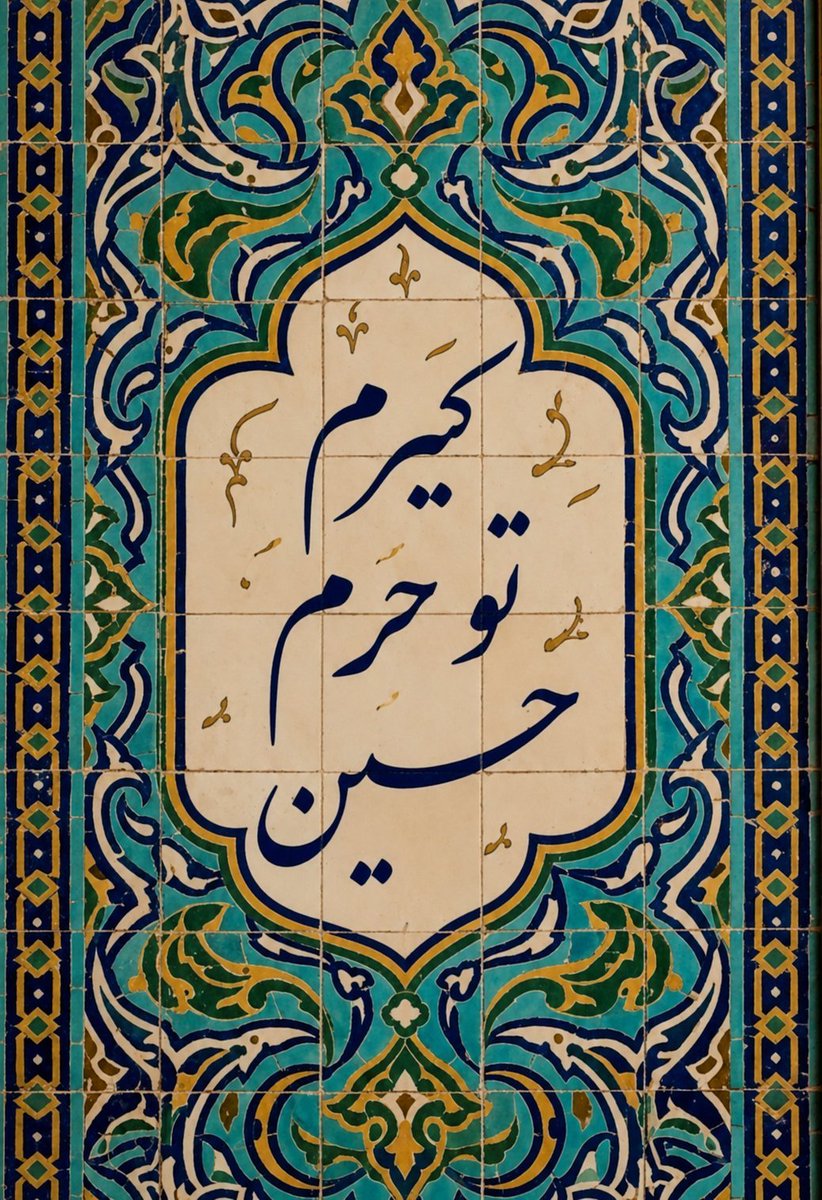 کیرم
تو حرم
حسین